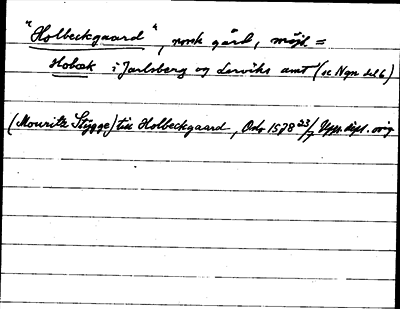 "Holbeckgaard", norsk gård, möjl. =
Hobæk i Jarlsberg og Larviks amt (se Ngn del 6)
(Mouritz Stygge) til Holbeckgaard, Oslo 1578 23/7 Upps. dipl. orig